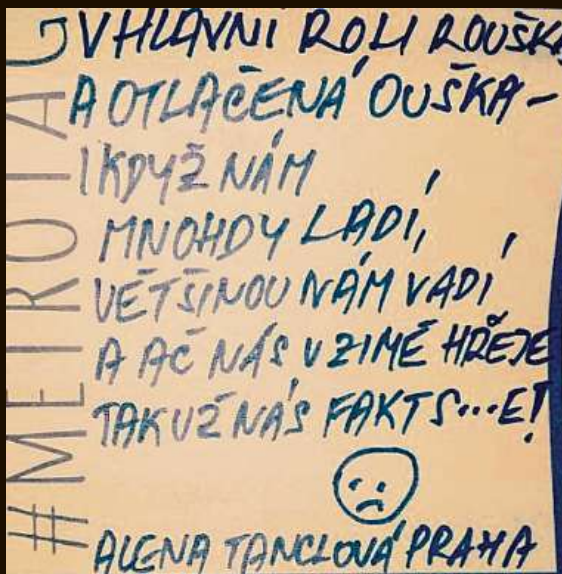 #METROTAG
V HLAVNI ROLI ROUŠKA
A OTLAČENÁ OUŠKA –
I KDYŽ NÁM
MNOHDY LADÍ,
VĚTŠINOU NÁM VADÍ
A AČ NÁS V ZIMĚ HŘEJE
TAK UŽ NÁS FAKT S...E!
ALENA TANCLOVÁ PRAHA